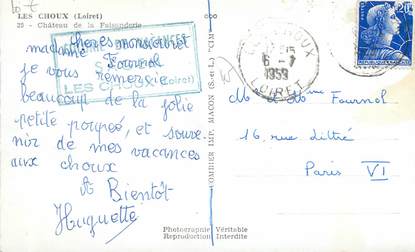 LES CHOUX (Loiret)
25 - Château de la Faisanderie
chères monsieur et
madame Fournol
je vous remercie
beaucoup de la jolie
petite poupée, et souve
nir de mes vacances
aux choux
A Bientôt
Huguette
LES CHOUX (Loiret)
COMBIER IMP. MACON (S.-et-L.) "CIM"
Photographie Véritable
Reproduction Interdite
6 - 7
1959
LOIRET
20F
M et Mme Fournol
16 rue Littré
Paris VI